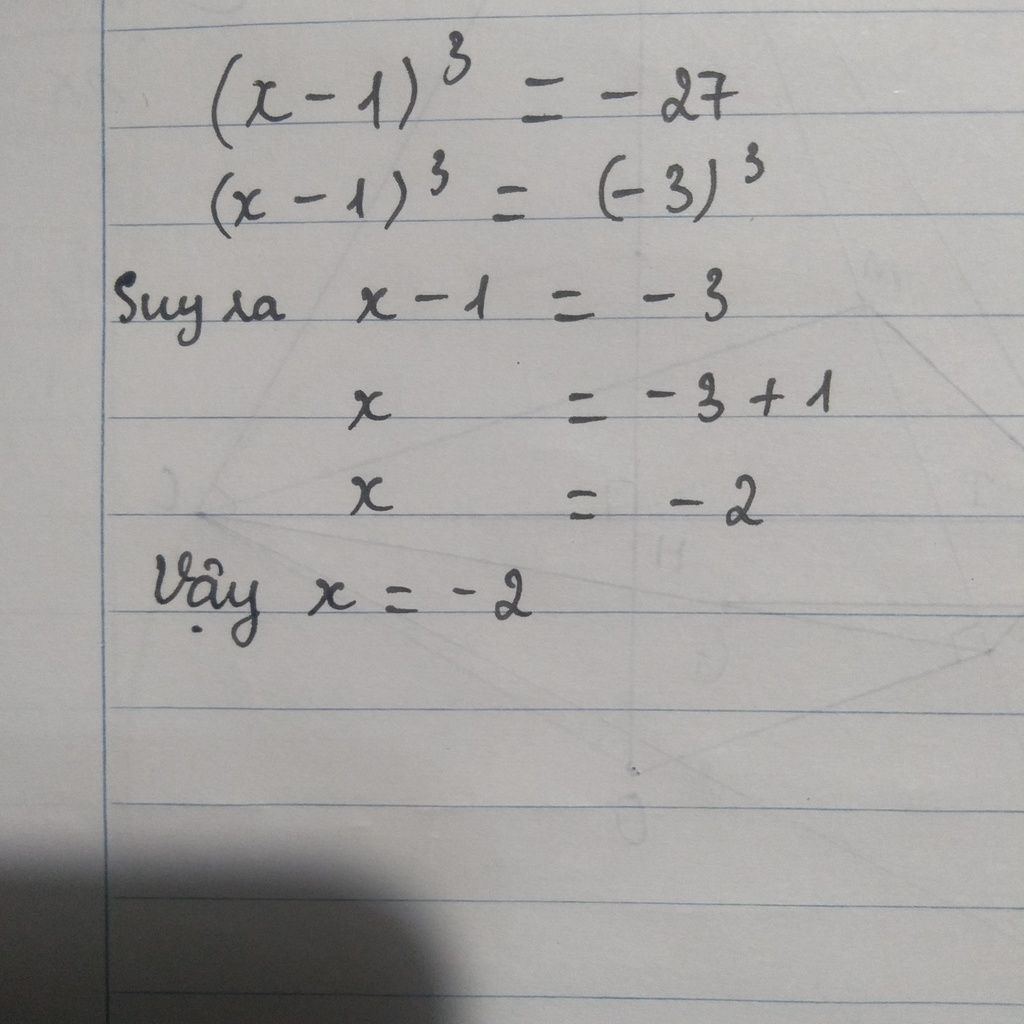 (x - 1)³ = - 27
(x - 1)³ = (- 3)³
Suy ra x - 1 = - 3
x = - 3 + 1
x = - 2
Vậy x = - 2